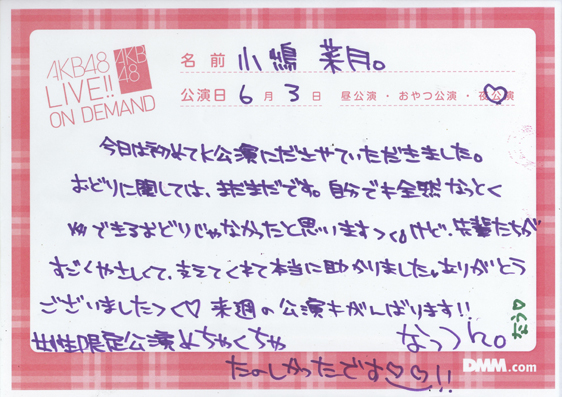 AKB48
LIVE!!
ON DEMAND
AKB
48
名前 小嶋 菜月。
公演日 6月3日 昼公演・おやつ公演・夜公演
今日は初めてK公演にださせていただきました。
おどりに関しては、まだまだです。自分でも全然なっとく
できるおどりじゃなかったと思います><。けど、先輩たちが
すごくやさしくて、支えてくれて本当に助かりました。ありがとう
ございました><♡ 来週の公演もがんばります!!
女性限定公演めちゃくちゃ
なっつん。
たのしかったです♡♡!!
DMM.com